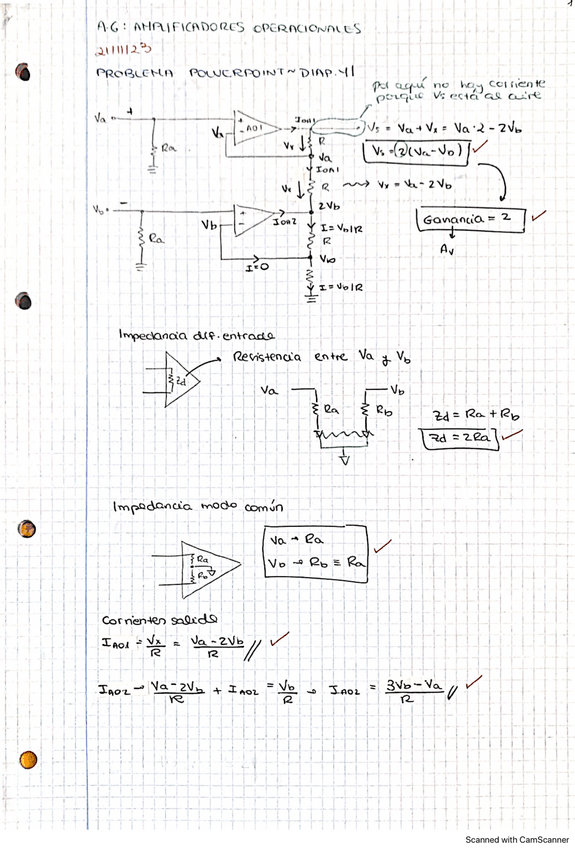 1
A.6: AMPLIFICADORES OPERACIONALES
21/11/23
PROBLEMA POWERPOINT ~ DIAP. 41
Por aquí no hay corriente
porque Vs está al aire
Va
+
Ra
Vx
+
-
AO1
IOA1
Vs = Va + Vx = Va·2 - 2Vb
Vs = 2(Va - Vb)
Vx
R
Va
IOA1
Vx
R
Vx = Va - 2Vb
Ganancia = 2
Av
Vb
-
Ra
Vb
+
-
IOA2
2Vb
I = Vb/R
R
Vb
I=0
I = Vb/R
Impedancia dif. entrada
Zd
Resistencia entre Va y Vb
Va
Vb
Ra
Rb
Zd = Ra + Rb
Zd = 2Ra
Impedancia modo común
Ra
Rb
Va → Ra
Vb → Rb ≡ Ra
Corrientes salida
IAO1 = Vx/R = (Va - 2Vb)/R //
IAO2 → (Va - 2Vb)/R + IAO2 = Vb/R → IAO2 = (3Vb - Va)/R //
Scanned with CamScanner